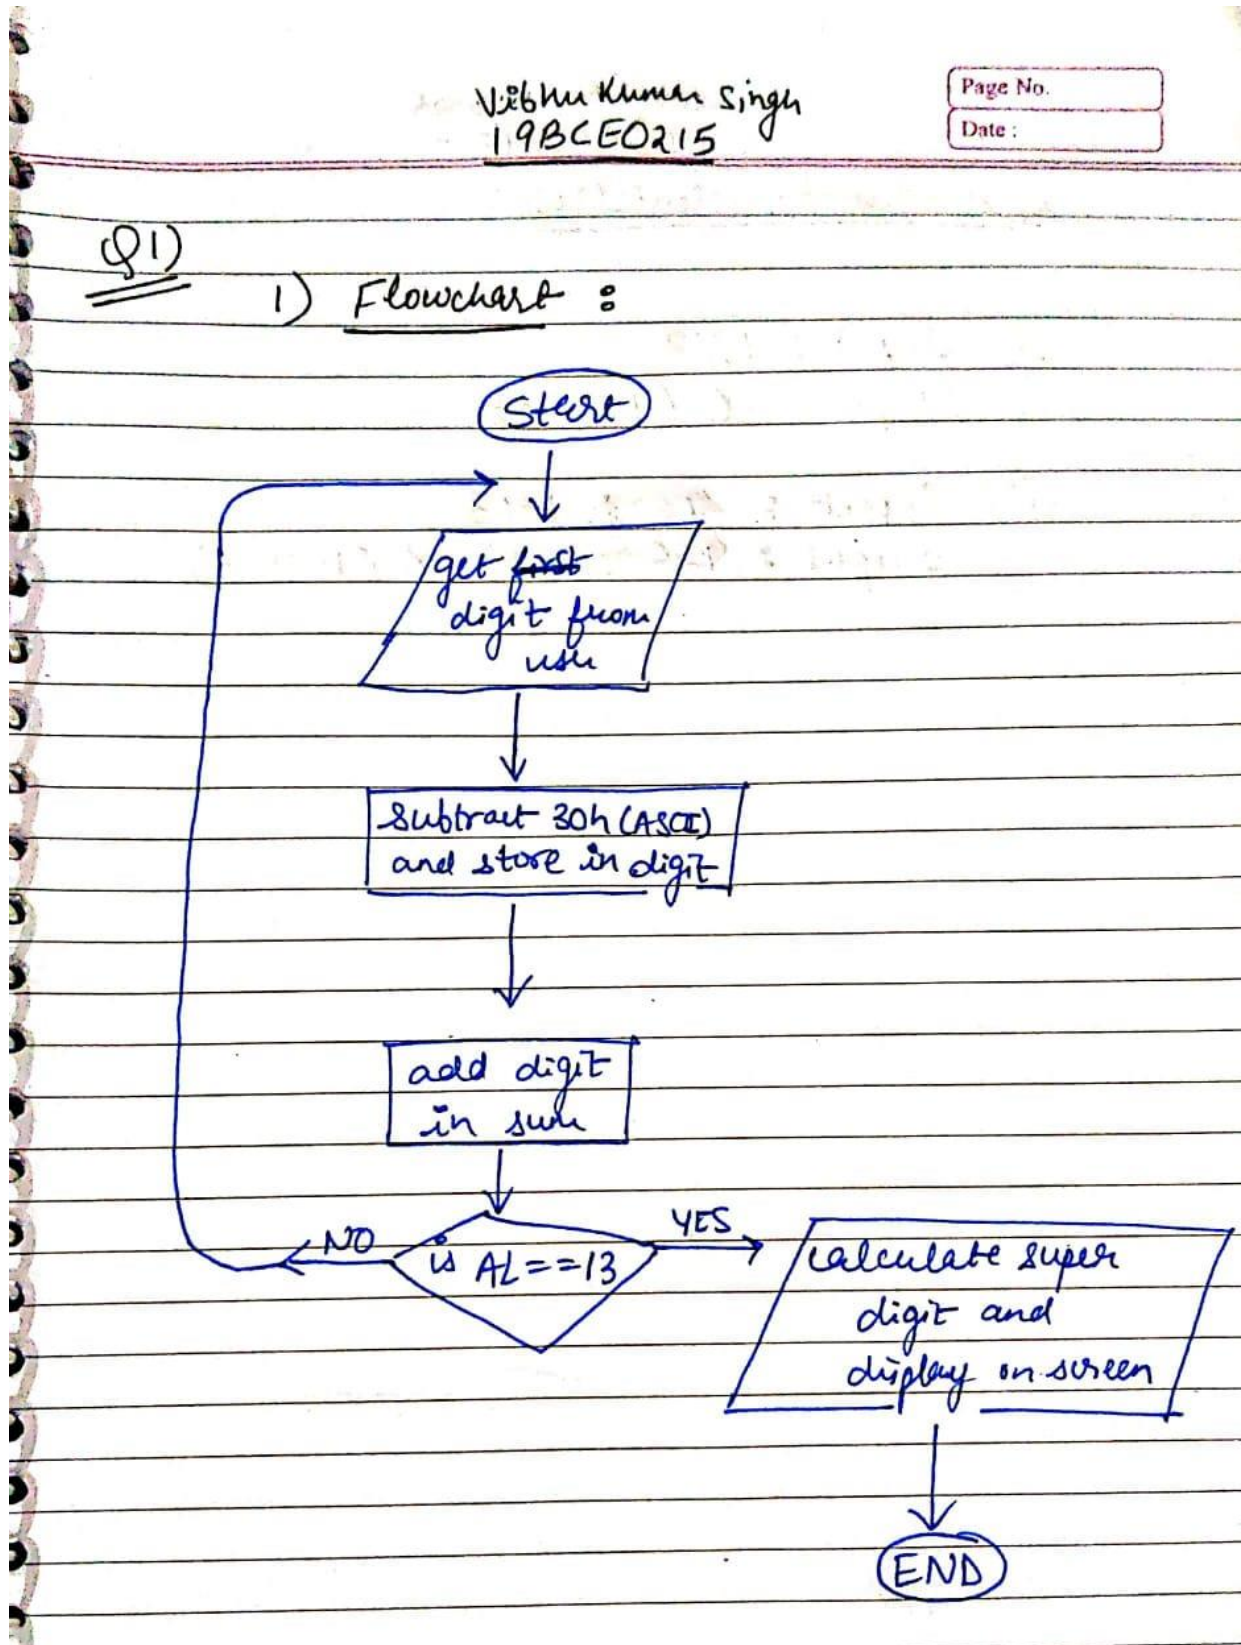 Vibhu Kumar Singh
19BCE0215
Page No.
Date :
Q1)
1) Flowchart :
Start
get first
digit from
user
Subtract 30h (ASCII)
and store in digit
add digit
in sum
is AL==13
NO
YES
calculate super
digit and
display on screen
END